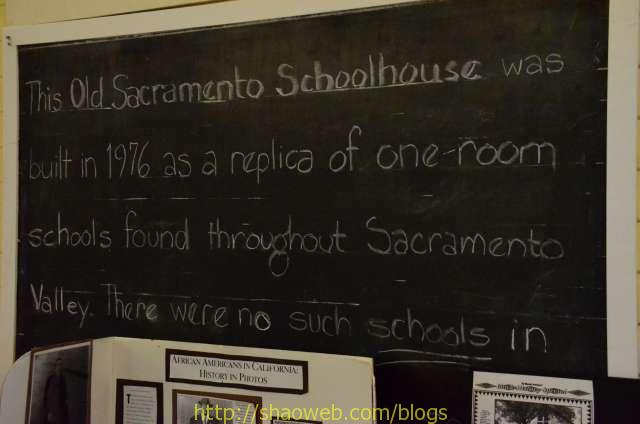 This Old Sacramento Schoolhouse was
built in 1976 as a replica of one-room
schools found throughout Sacramento
Valley. There were no such schools in
AFRICAN AMERICANS IN CALIFORNIA:
HISTORY IN PHOTOS
http://shaoweb.com/blogs